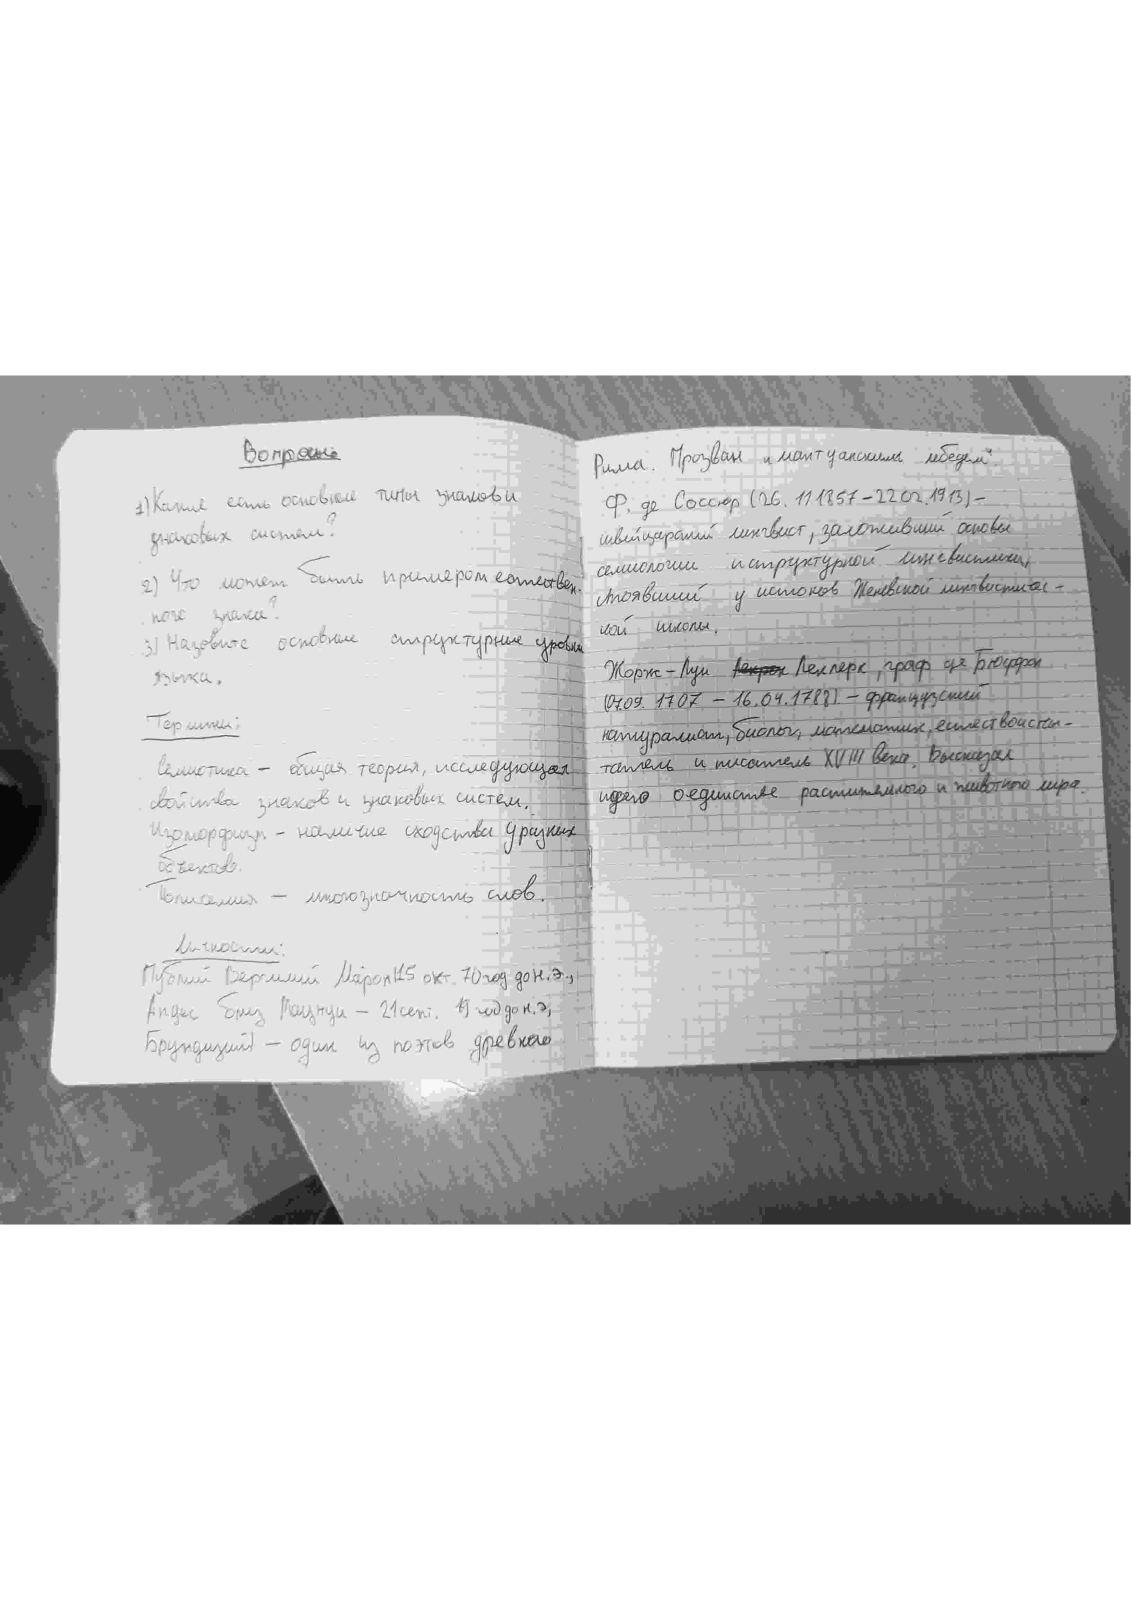 Вопросы
1) Какие есть основные типы знаков и
знаковых систем?
2) Что может быть примером естествен-
ного знака?
3) Назовите основные структурные уровни
языка.
Термины:
Семиотика – общая теория, исследующая
свойства знаков и знаковых систем.
Изоморфизм – наличие сходства у разных
объектов.
Полисемия – многозначность слов.
Личности:
Публий Вергилий Марон (15 окт. 70 год до н.э.,
Андес близ Мантуи – 21 сент. 19 год до н.э,
Брундизий) – один из поэтов древнего
Рима. Прозван "мантуанским лебедем".
Ф. де Соссюр (26.11 1857 – 22.02.1913) –
швейцарский лингвист, заложивший основы
семиологии и структурной лингвистики,
стоявший у истоков Женевской лингвистичес-
кой школы.
Жорж-Луи Леклерк, граф де Бюффон
(07.09. 1707 – 16.04.1788) – французский
натуралист, биолог, математик, естествоиспы-
татель и писатель XVIII века. Высказал
идею о единстве растительного и животного мира.